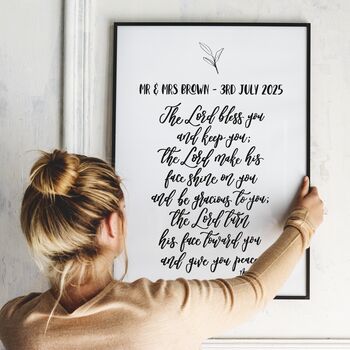 MR & MRS BROWN - 3RD JULY 2025
The Lord bless you
and keep you;
the Lord make his
face shine on you
and be gracious to you;
the Lord turn
his face toward you
and give you peace